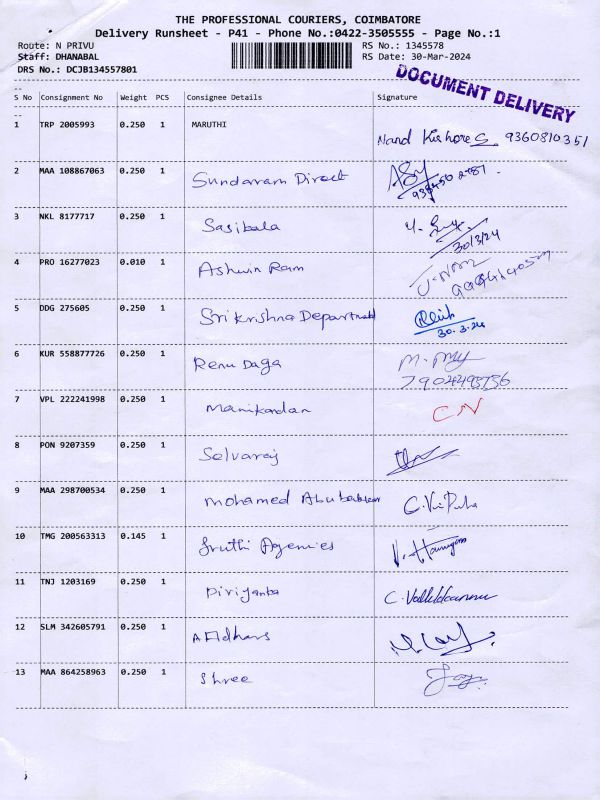 THE PROFESSIONAL COURIERS, COIMBATORE
Delivery Runsheet - P41 - Phone No.:0422-3505555 - Page No.:1
Route: N PRIVU RS No.: 1345578
Staff: DHANABAL RS Date: 30-Mar-2024
DRS No.: DCJB134557801
DOCUMENT DELIVERY
S No Consignment No Weight PCS Consignee Details Signature
1 TRP 2005993 0.250 1 MARUTHI
Nand Kishore S. 9360810351
2 MAA 108867063 0.250 1 Sundaram Direct
3 NKL 8177717 0.250 1 Sasibala
30/3/24
4 PRO 16277023 0.010 1 Ashwin Ram
5 DDG 275605 0.250 1 Srikrishna Department
30.3.24
6 KUR 558877726 0.250 1 Renu Daga
7904493736
7 VPL 222241998 0.250 1 Manikandan CN
8 PON 9207359 0.250 1 Selvaraj
9 MAA 298700534 0.250 1 Mohamed Abubakker
10 TMG 200563313 0.145 1 Sruthi Agencies
11 TNJ 1203169 0.250 1 Piriyanka
12 SLM 342605791 0.250 1
13 MAA 864258963 0.250 1 Shree